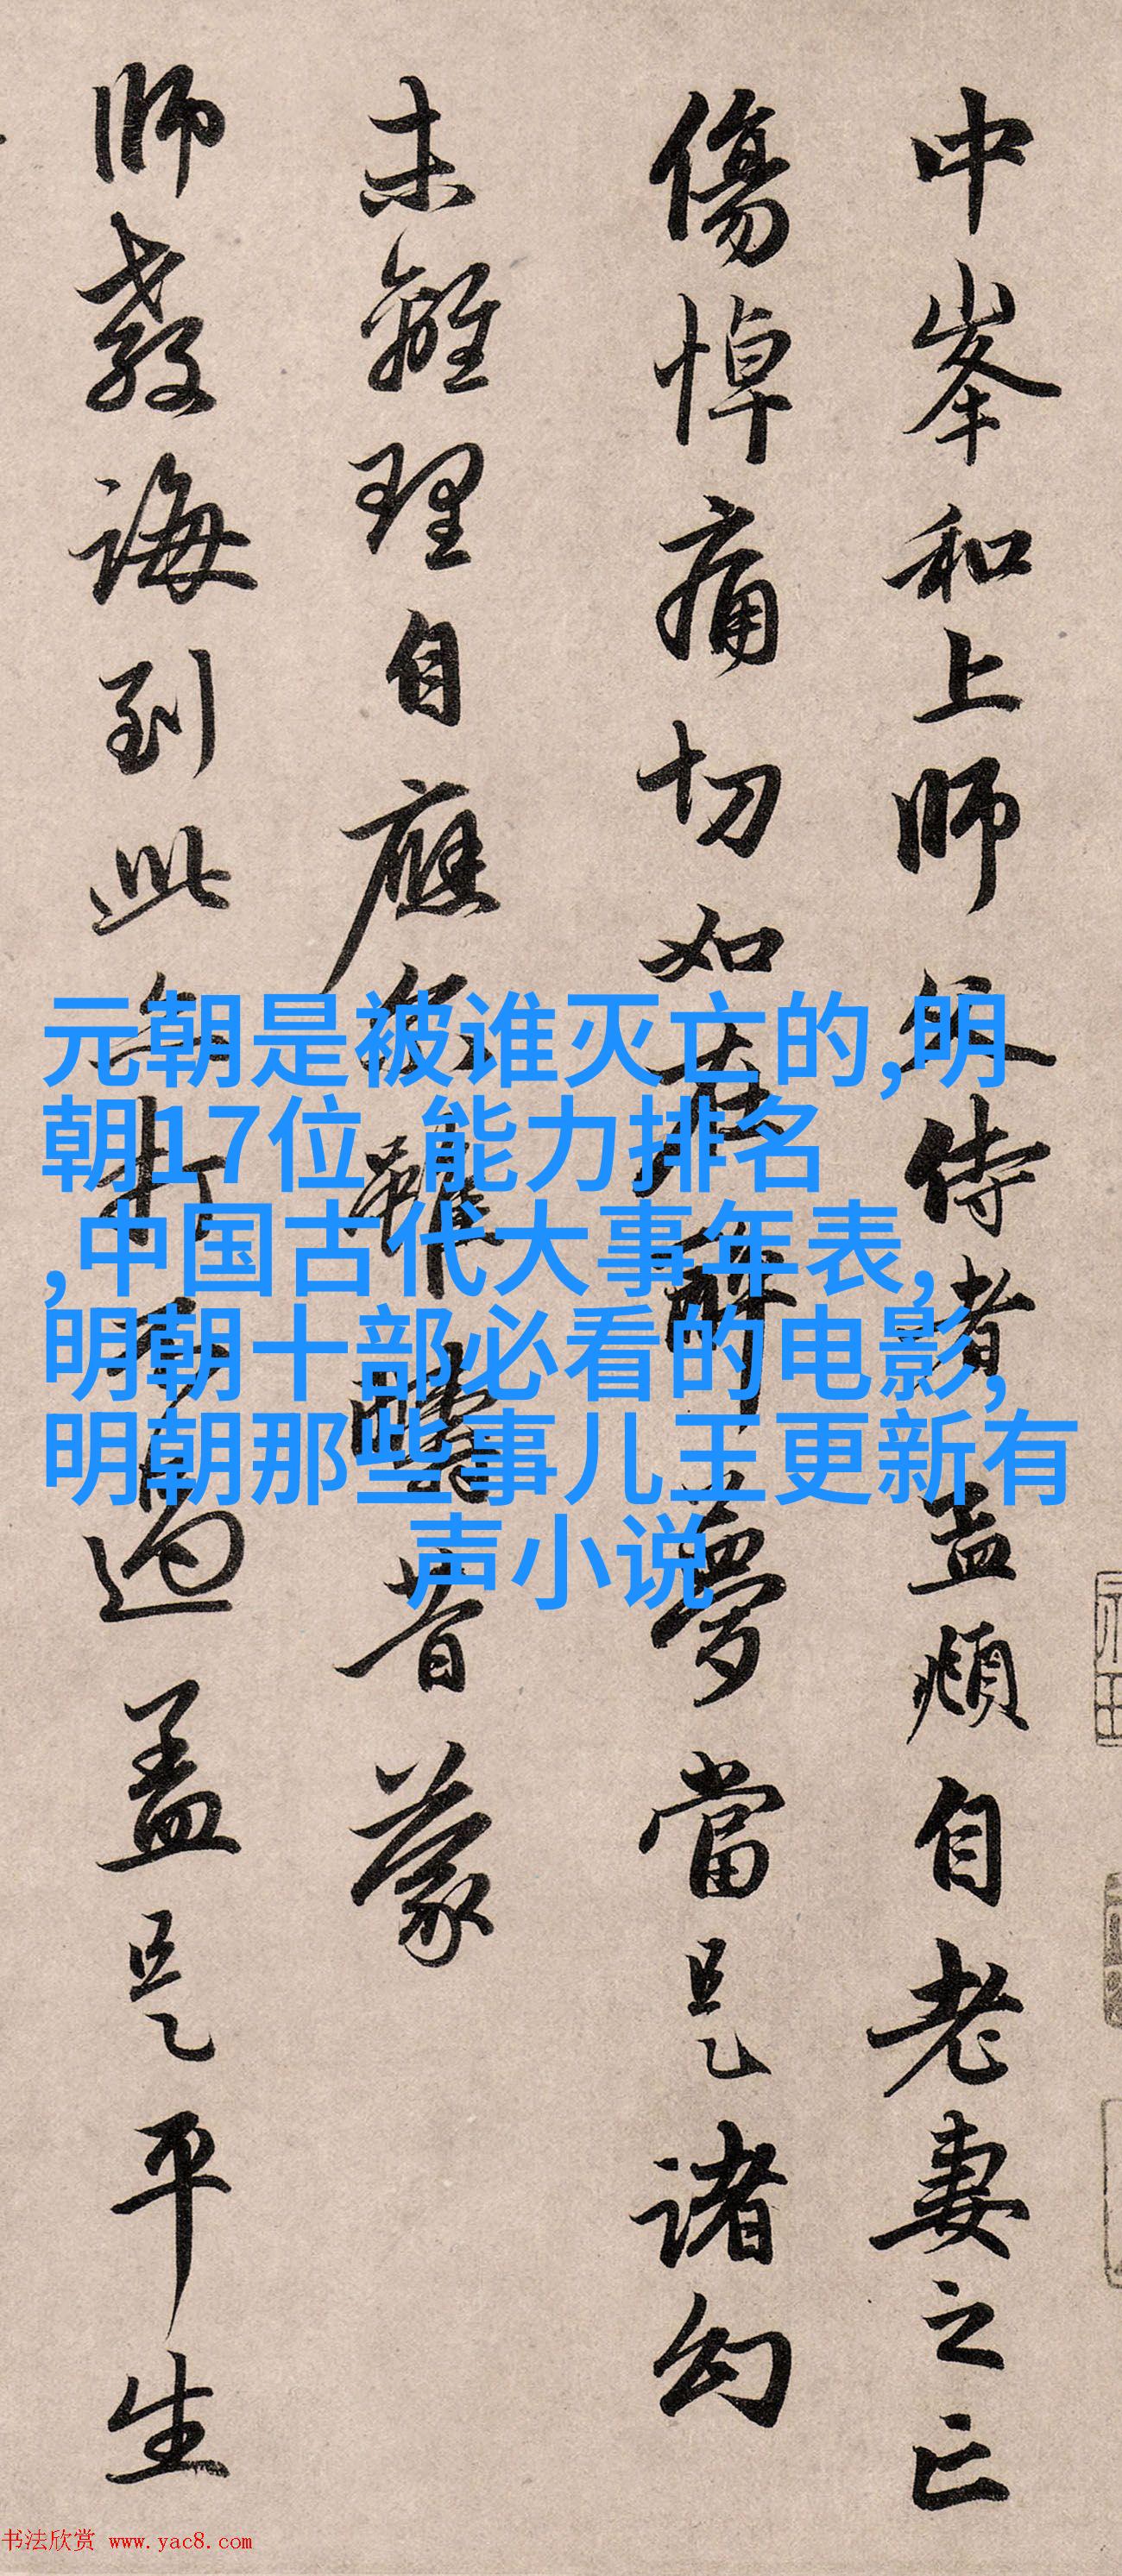 中峯和上師父侍者孟頫自老妻之亡
傷悼痛切如在醉夢當是諸幻
未離理自應尔雖疇昔蒙
師教誨到此亦打不過蓋是平生
元朝是被谁灭亡的,明
朝17位 能力排名
,中国古代大事年表,
明朝十部必看的电影,
明朝那些事儿王更新有
声小说
书法欣赏 www.yac8.com